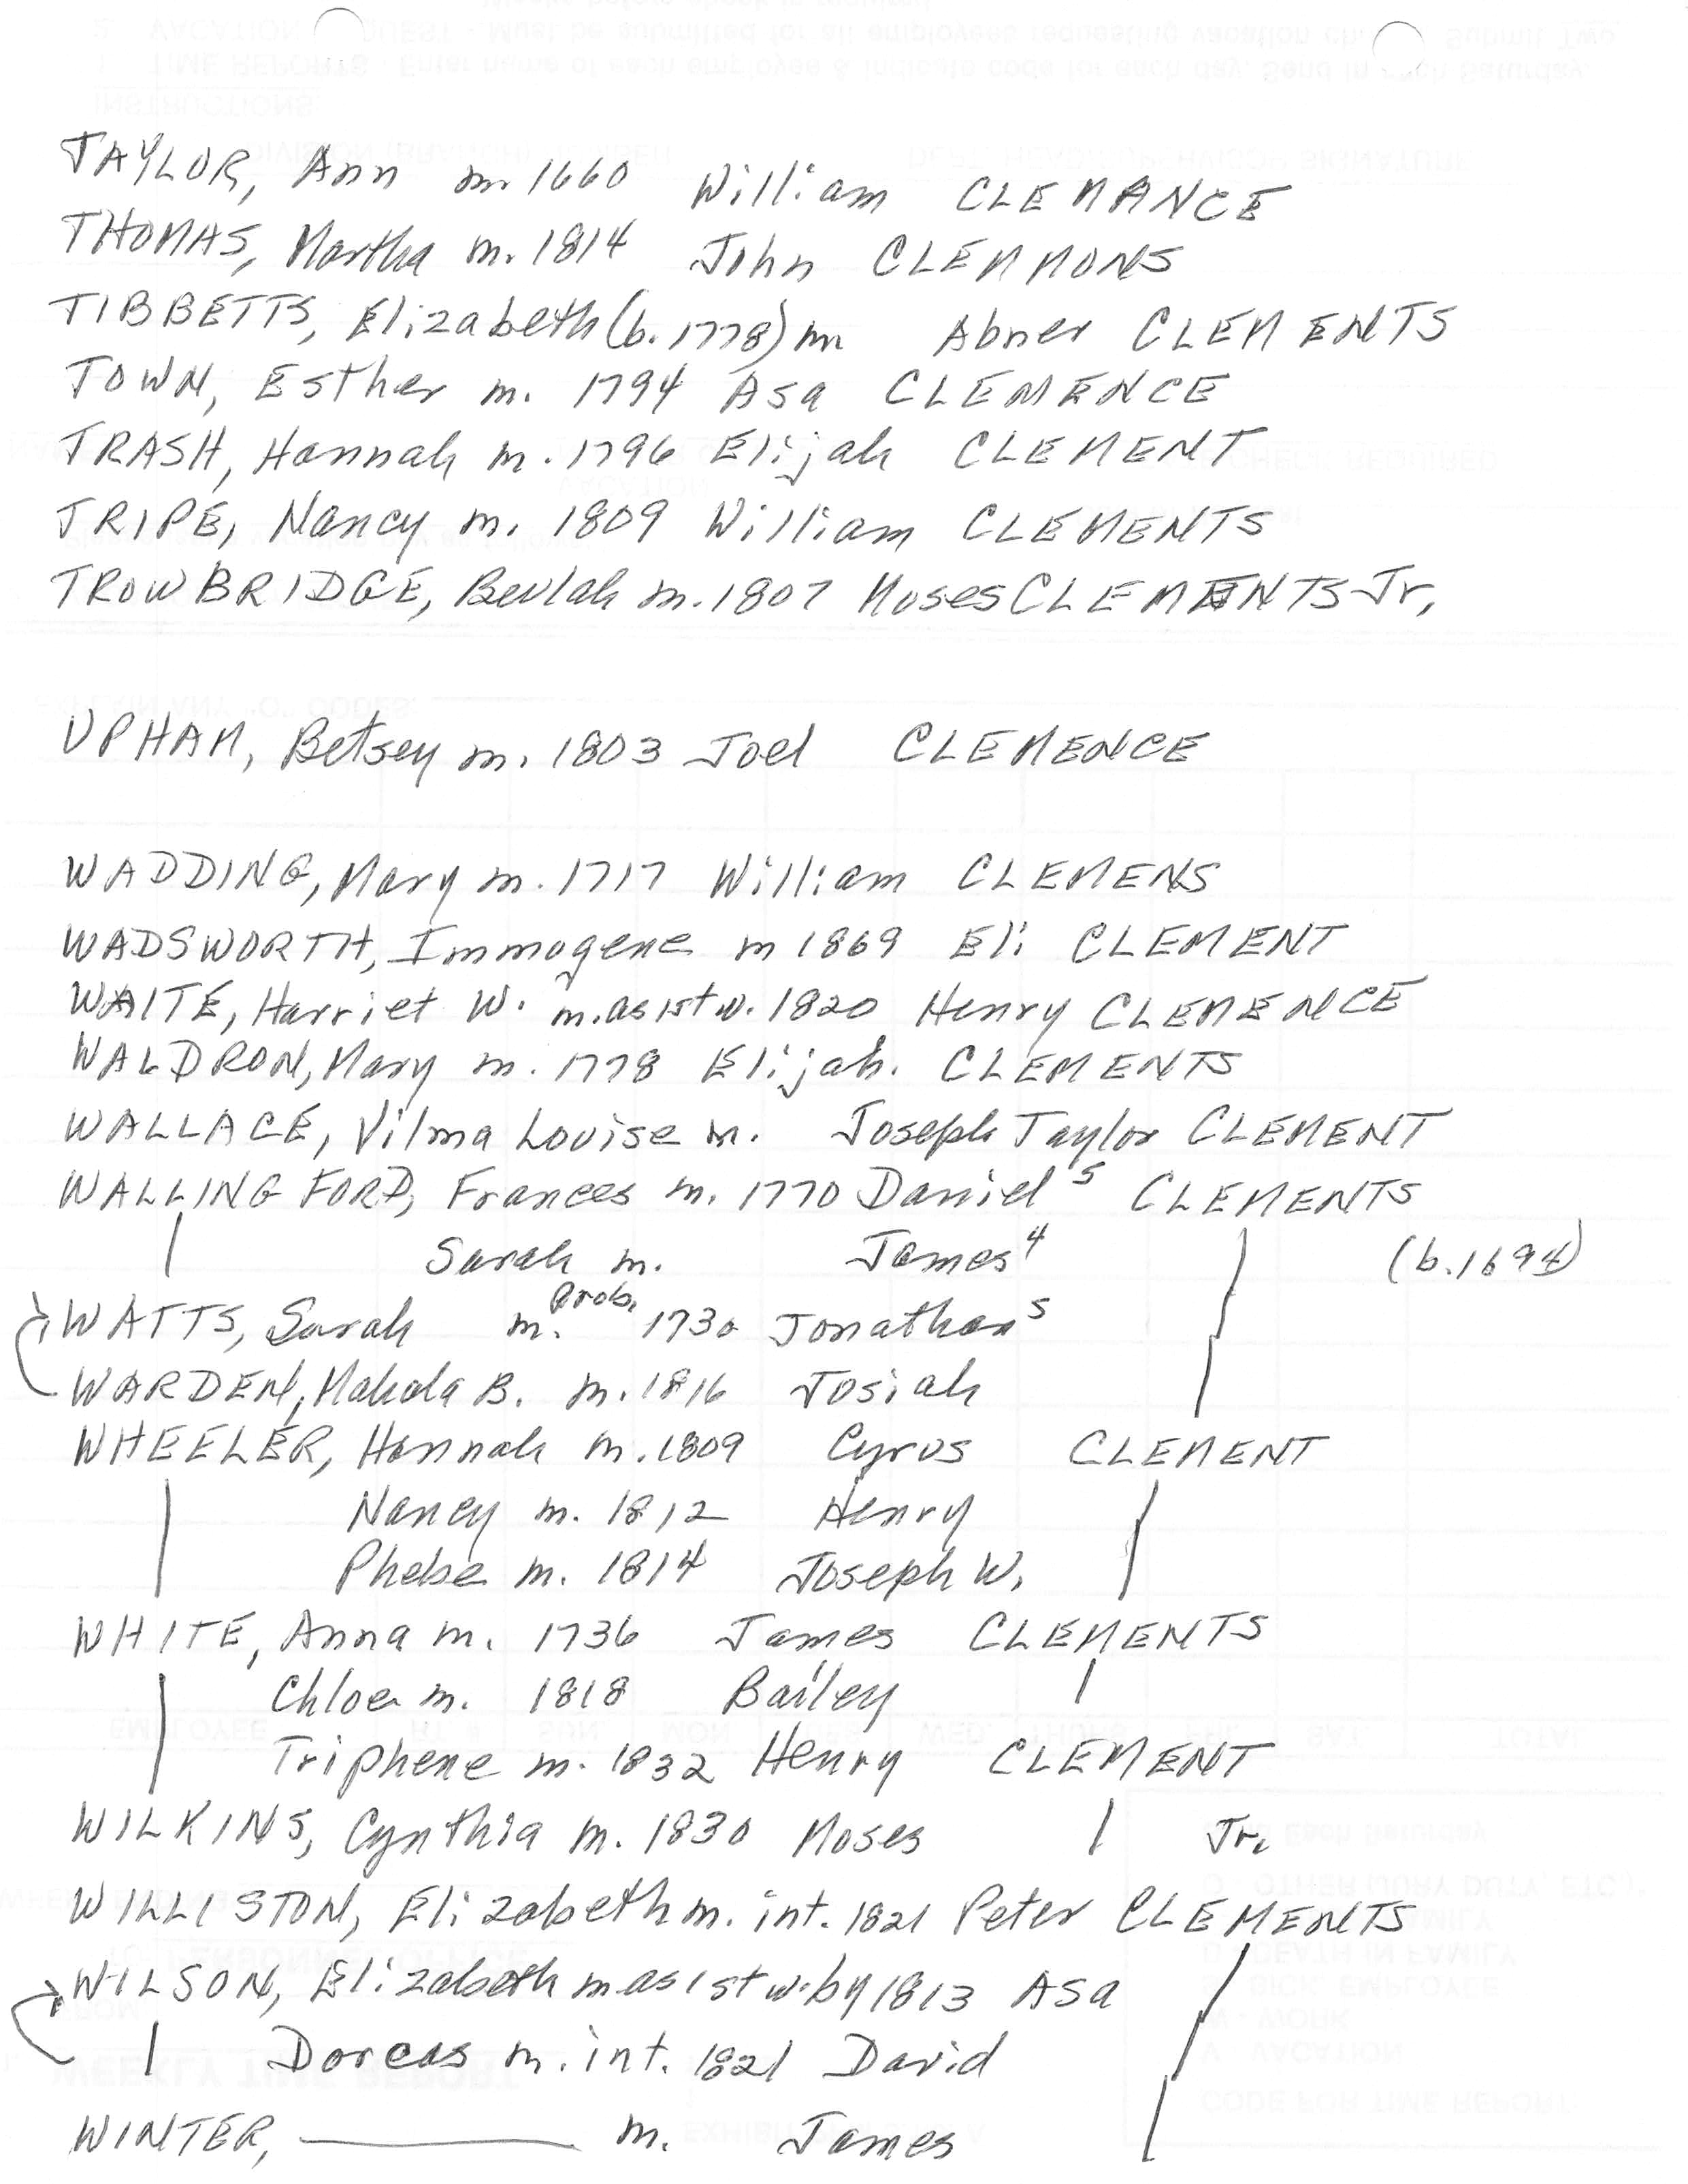 TAYLOR, Ann m. 1660 William CLEMANCE
THOMAS, Martha m. 1814 John CLEMMONS
TIBBETTS, Elizabeth (b. 1778) m Abner CLEMENTS
TOWN, Esther m. 1794 Asa CLEMENCE
TRASH, Hannah m. 1796 Elijah CLEMENT
TRIPE, Nancy m. 1809 William CLEMENTS
TROWBRIDGE, Beulah m. 1807 Moses CLEMENTS Jr.
UPHAM, Betsey m. 1803 Joel CLEMENCE
WADDING, Mary m. 1717 William CLEMENS
WADSWORTH, Immogene m 1869 Eli CLEMENT
WAITE, Harriet W. m. as 1st w. 1820 Henry CLEMENCE
WALDRON, Mary m. 1778 Elijah. CLEMENTS
WALLACE, Vilma Louise m. Joseph Taylor CLEMENT
WALLINGFORD, Frances m. 1770 Daniel 5 CLEMENTS
| Sarah m. James 4 | (b. 1694)
WATTS, Sarah m. prob. 1730 Jonathan 5 |
WARDEN, Mahala B. m. 1816 Josiah |
WHEELER, Hannah m. 1809 Cyrus CLEMENT
| Nancy m. 1812 Henry |
| Phebe m. 1814 Joseph W. |
WHITE, Anna m. 1736 James CLEMENTS
| Chloe m. 1818 Bailey |
| Triphene m. 1832 Henry CLEMENT
WILKINS, Cynthia m. 1830 Moses | Jr.
WILLISTON, Elizabeth m. int. 1821 Peter CLEMENTS
WILSON, Elizabeth m as 1st w. by 1813 Asa |
| Dorcas m. int. 1821 David |
WINTER, ——— m. James |